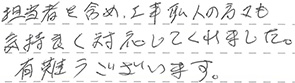 担当者を含め、工事私人の方々も
気持良く対応してくれました。
有難うございます。